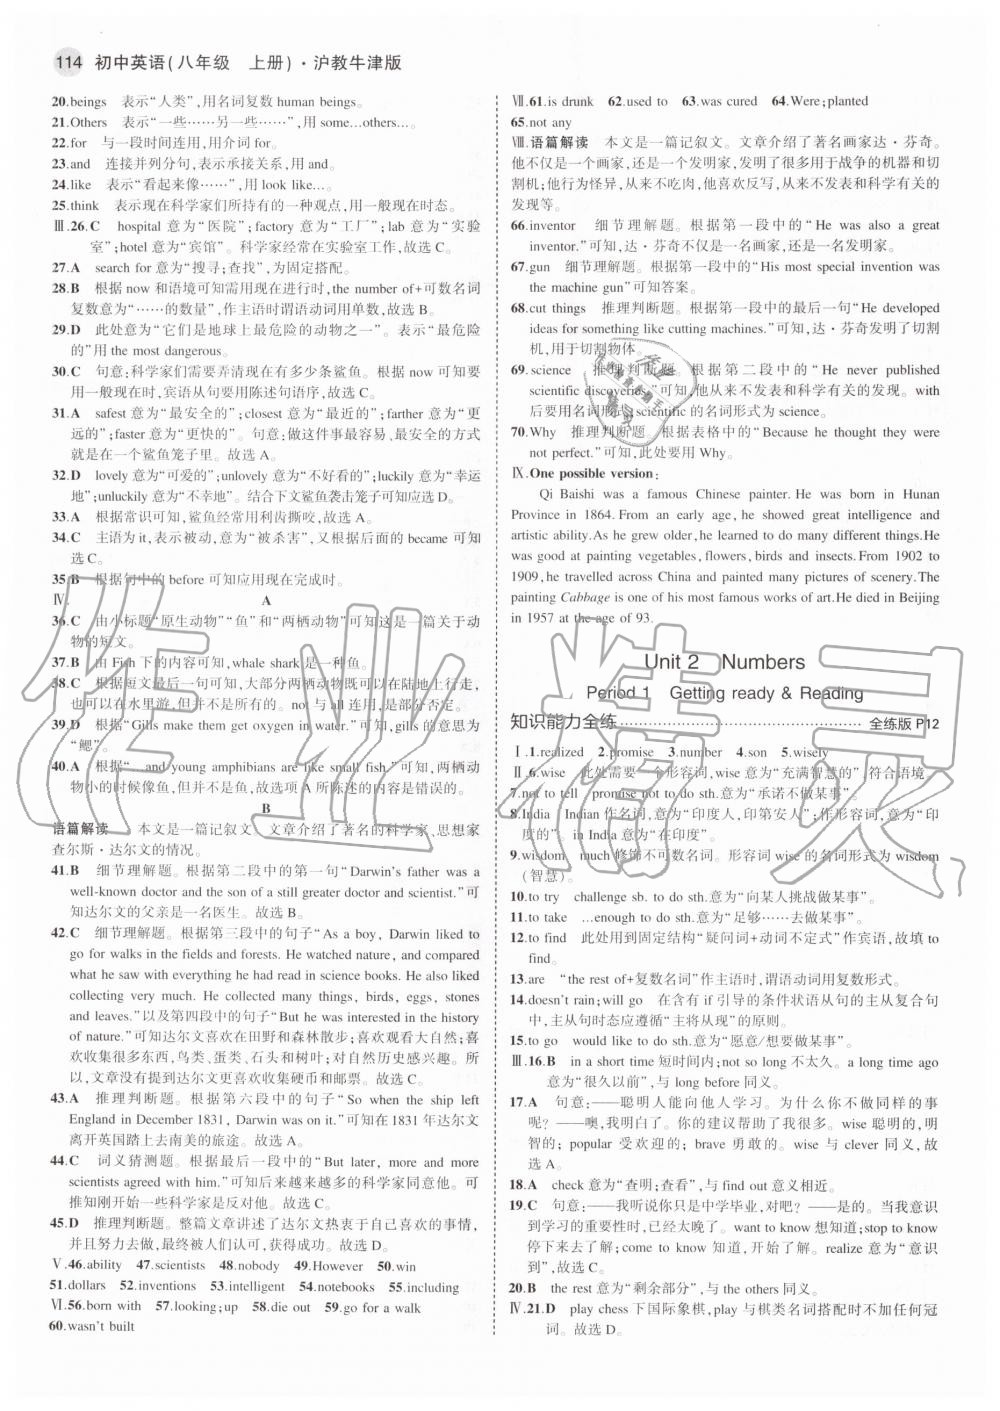 114 初中英语(八年级 上册)·沪教牛津版
20.beings 表示“人类”,用名词复数 human beings。
21.Others 表示“一些……另一些……”,用 some...others...。
22.for 与一段时间连用,用介词 for。
23.and 连接并列分句,表示承接关系,用 and。
24.like 表示“看起来像……”,用 look like...。
25.think 表示现在科学家们所持有的一种观点,用一般现在时态。
Ⅲ.26.C hospital 意为“医院”;factory 意为“工厂”;lab 意为“实验
室”;hotel 意为“宾馆”。科学家经常在实验室工作,故选 C。
27.A search for 意为“搜寻;查找”,为固定搭配。
28.B 根据 now 和语境可知需用现在进行时,the number of+可数名词
复数意为“……的数量”,作主语时谓语动词用单数,故选 B。
29.D 此处意为“它们是地球上最危险的动物之一”。表示“最危险
的”用 the most dangerous。
30.C 句意:科学家们需要弄清现在有多少条鲨鱼。根据 now 可知要
用一般现在时,宾语从句要用陈述句语序,故选 C。
31.A safest 意为“最安全的”;closest 意为“最近的”;farther 意为“更
远的”;faster 意为“更快的”。句意:做这件事最容易、最安全的方式
就是在一个鲨鱼笼子里。故选 A。
32.D lovely 意为“可爱的”;unlovely 意为“不好看的”;luckily 意为“幸运
地”;unluckily 意为“不幸地”。结合下文鲨鱼袭击笼子可知选 D。
33.A 根据常识可知,鲨鱼经常用利齿撕咬,故选 A。
34.C 主语为 it,表示被动,意为“被杀害”,又根据后面的 became 可知
选 C。
35.B 根据句中的 before 可知应用现在完成时。
Ⅳ. A
36.C 由小标题“原生动物”“鱼”和“两栖动物”可知这是一篇关于动
物的短文。
37.B 由 Fish 下的内容可知,whale shark 是一种鱼。
38.C 根据短文最后一句可知,大部分两栖动物既可以在陆地上行走,
也可以在水里游,但并不是所有的。not 与 all 连用,是部分否定。
39.D 根据“Gills make them get oxygen in water.”可知,gills 的意思为
“鳃”。
40.A 根据“...and young amphibians are like small fish.”可知,两栖动
物小的时候像鱼,故选项 A 所描述的内容是错误的。
B
语篇解读 本文是一篇记叙文。文章介绍了著名的科学家、思想家
查尔斯·达尔文的情况。
41.B 细节理解题。根据第二段中的第一句“Darwin's father was a
well-known doctor and the son of a still greater doctor and scientist.”可
知达尔文的父亲是一名医生。故选 B。
42.C 细节理解题。根据第三段中的句子“As a boy, Darwin liked to
go for walks in the fields and forests. He watched nature, and compared
what he saw with everything he had read in science books. He also liked
collecting very much. He collected many things, birds, eggs, stones
and leaves.”以及第四段中的句子“But he was interested in the history
of nature.”可知达尔文喜欢在田野和森林散步;喜欢观看大自然;喜
欢收集很多东西,鸟类、蛋类、石头和树叶;对自然历史感兴趣。所
以,文章没有提到达尔文更喜欢收集硬币和邮票。故选 C。
43.A 推理判断题。根据第六段中的句子“So when the ship left
England in December 1831, Darwin was on it.”可知在 1831 年达尔文
离开英国踏上去南美的旅途。故选 A。
44.C 词义猜测题。根据最后一段中的“But later, more and more
scientists agreed with him.”可知后来越来越多的科学家同意他。可
推知刚开始一些科学家是反对他。故选 C。
45.D 推理判断题。整篇文章讲述了达尔文热衷于自己喜欢的事情,
并且努力去做,最终被人们认可,获得成功。故选 D。
Ⅴ.46.ability 47.scientists 48.nobody 49.However 50.win
51.dollars 52.inventions 53.intelligent 54.notebooks 55.including
Ⅵ.56.born with 57.looking;up 58.die out 59.go for a walk
60.wasn't built
Ⅶ.61.is drunk 62.used to 63.was cured 64.Were;planted
65.not any
Ⅷ.语篇解读 本文是一篇记叙文。文章介绍了著名画家达·芬奇。
他不仅是一个画家,还是一个发明家,发明了很多用于战争的机器和切
割机;他行为怪异,从来不吃肉,他喜欢反写,从来不发表和科学有关的
发现等。
66.inventor 细节理解题。根据第一段中的“He was also a great
inventor.”可知,达·芬奇不仅是一名画家,还是一名发明家。
67.gun 细节理解题。根据第一段中的“His most special invention was
the machine gun”可知答案。
68.cut things 推理判断题。根据第一段中的最后一句“He developed
ideas for something like cutting machines.”可知,达·芬奇发明了切割
机,用于切割物体。
69.science 推理判断题。根据第二段中的“He never published
scientific discoveries.”可知,他从来不发表和科学有关的发现。with
后要用名词形式;scientific 的名词形式为 science。
70.Why 推理判断题。根据表格中的“Because he thought they were
not perfect.”可知,此处要用 Why。
Ⅸ.One possible version:
Qi Baishi was a famous Chinese painter. He was born in Hunan
Province in 1864. From an early age, he showed great intelligence and
artistic ability. As he grew older,he learned to do many different things.He
was good at painting vegetables, flowers, birds and insects.From 1902 to
1909,he travelled across China and painted many pictures of scenery.The
painting Cabbage is one of his most famous works of art.He died in Beijing
in 1957 at the age of 93.
Unit 2 Numbers
Period 1 Getting ready & Reading
知识能力全练 全练版 P12
Ⅰ.1.realized 2.promise 3.number 4.son 5.wisely
Ⅱ.6.wise 此处需要一个形容词,wise 意为“充满智慧的”,符合语境。
7.not to tell promise not to do sth.意为“承诺不做某事”。
8.India Indian 作名词,意为“印度人,印第安人”;作形容词,意为“印
度的”。in India 意为“在印度”。
9.wisdom much 修饰不可数名词。形容词 wise 的名词形式为 wisdom
(智慧)。
10.to try challenge sb. to do sth.意为“向某人挑战做某事”。
11.to take ...enough to do sth.意为“足够……去做某事”。
12.to find 此处用到固定结构“疑问词+动词不定式”作宾语,故填 to
find。
13.are “the rest of+复数名词”作主语时,谓语动词用复数形式。
14.doesn't rain;will go 在含有 if 引导的条件状语从句的主从复合句
中,主从句时态应遵循“主将从现”的原则。
15.to go would like to do sth.意为“愿意/想要做某事”。
Ⅲ.16.B in a short time 短时间内;not so long 不太久。a long time ago
意为“很久以前”,与 long before 同义。
17.A 句意:——聪明人能向他人学习。为什么你不做同样的事
呢?——噢,我明白了。你的建议帮助了我很多。wise 聪明的,明
智的;popular 受欢迎的;brave 勇敢的。wise 与 clever 同义,故
选 A。
18.A check 意为“查明;查看”,与 find out 意义相近。
19.C 句意:——我听说你只是中学毕业,对吧?——是的。当我意识
到学习的重要性时,已经太晚了。want to know 想知道;stop to know
停下来去了解;come to know 知道,开始了解。realize 意为“意识
到”,故选 C。
20.B the rest 意为“剩余部分”,与 the others 同义。
Ⅳ.21.D play chess 下国际象棋,play 与棋类名词搭配时不加任何冠
词。故选 D。
作业精灵